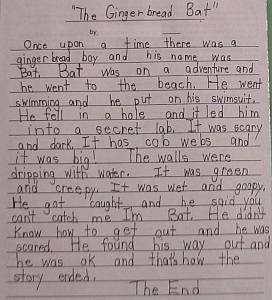 "The Gingerbread Bat"
by.
Once upon a time there was a
gingerbread boy and his name was
Bat. Bat was on a adventure and
he went to the beach. He went
swimming and he put on his swimsuit.
He fell in a hole and it led him
into a secret lab. It was scary
and dark. It has cob webs and
it was big! The walls were
dripping with water. It was green
and creepy. It was wet and goopy.
He got caught and he said you
can't catch me Im Bat. He didn't
know how to get out and he was
scared. He found his way out and
he was ok and that's how the
story ended.
The End